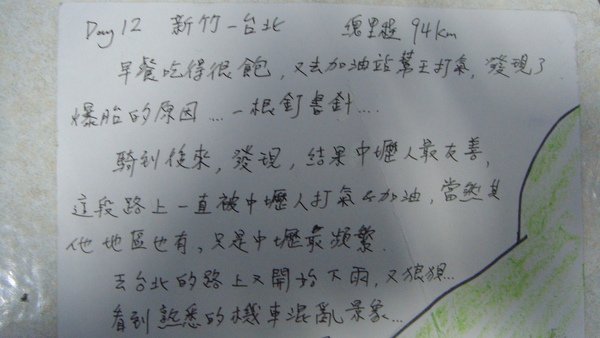 Day 12 新竹-台北 總里程 94km
早餐吃得很飽,又去加油站幫王打氣,發現了
爆胎的原因....一根釘書針....
騎到後來,發現,結果中壢人最友善,
這段路上一直被中壢人打氣&加油,當然其
他地區也有,只是中壢最頻繁.
去台北的路上又開始下雨,又狼狽...
看到熟悉的機車混亂景象...